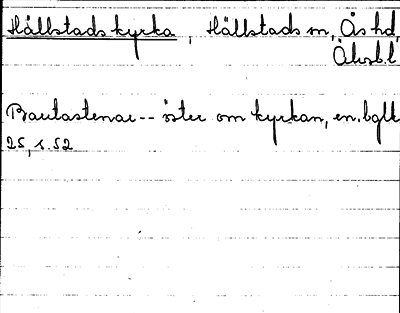 Hällstads kyrka, Hällstads sn, Ås hd,
Älvsb.l
Bautastenar -- öster om kyrkan, en.bglt
25, s. 52